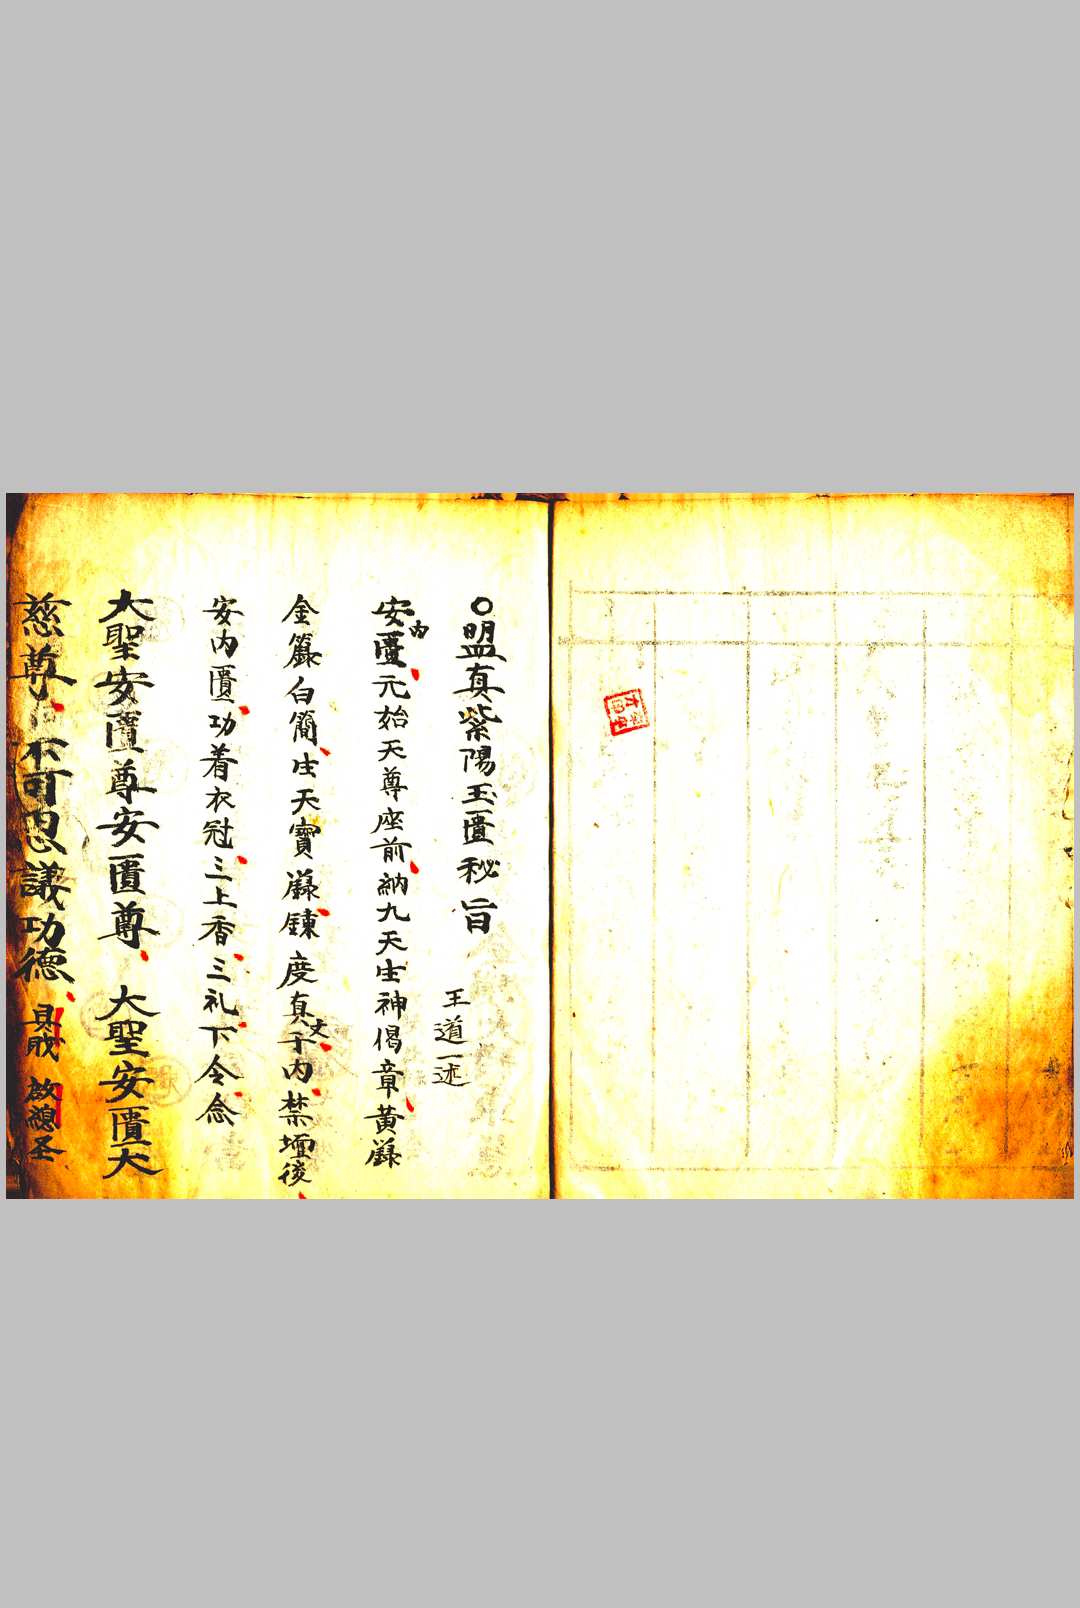 ○盟真紫陽玉匱秘旨
王道一述
安内匱元始天尊座前納九天生神偈章黃籙
金籙白簡生天寶籙鍊度真文于内禁壇後
安内匱功着衣冠三上香三礼下令念
大聖安匱尊安匱尊大聖安匱大
慈尊不可思議功德具戝啟總圣